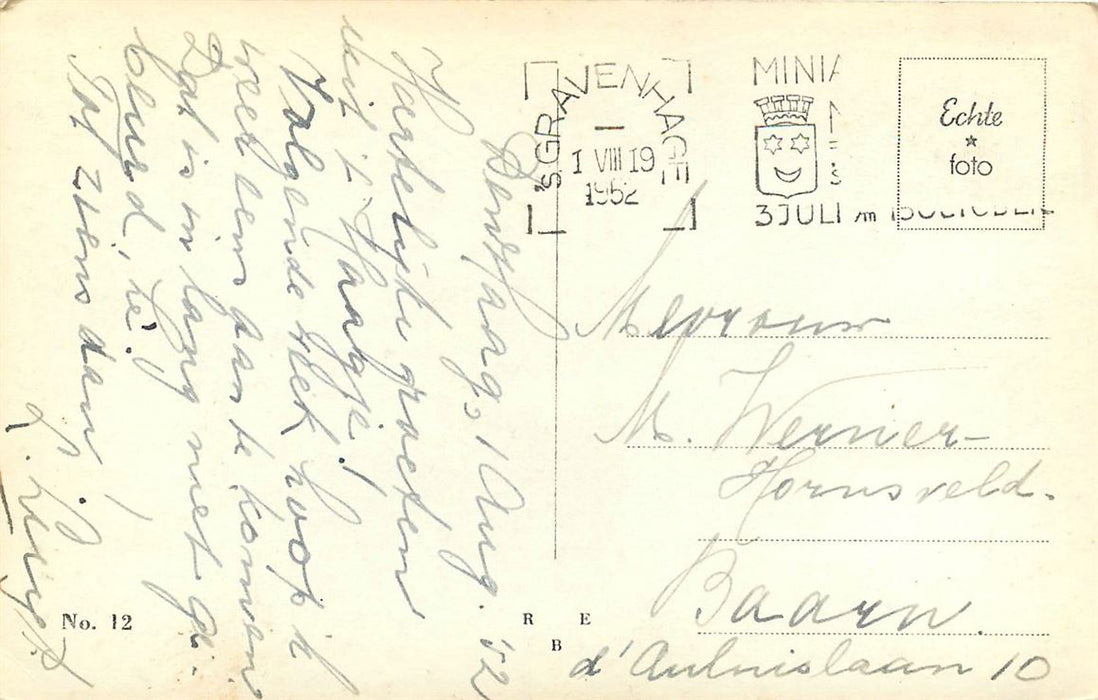 Den Haag, 1 Aug. '52
Hartelijke groeten
uit 't Haagje!
Volgende week hoop ik
weer eens aan te komen
Dat is in lang niet ge-
beurd, hè!
Tot ziens dan,
'S.GRAVENHAGE
1 VIII 19
1952
MINIA
3 JULI T/M
Echte
foto
Mevrouw
M. Werner-
Hornsveld.
Baarn.
d'Aulnislaan 10
No. 12
R E
B